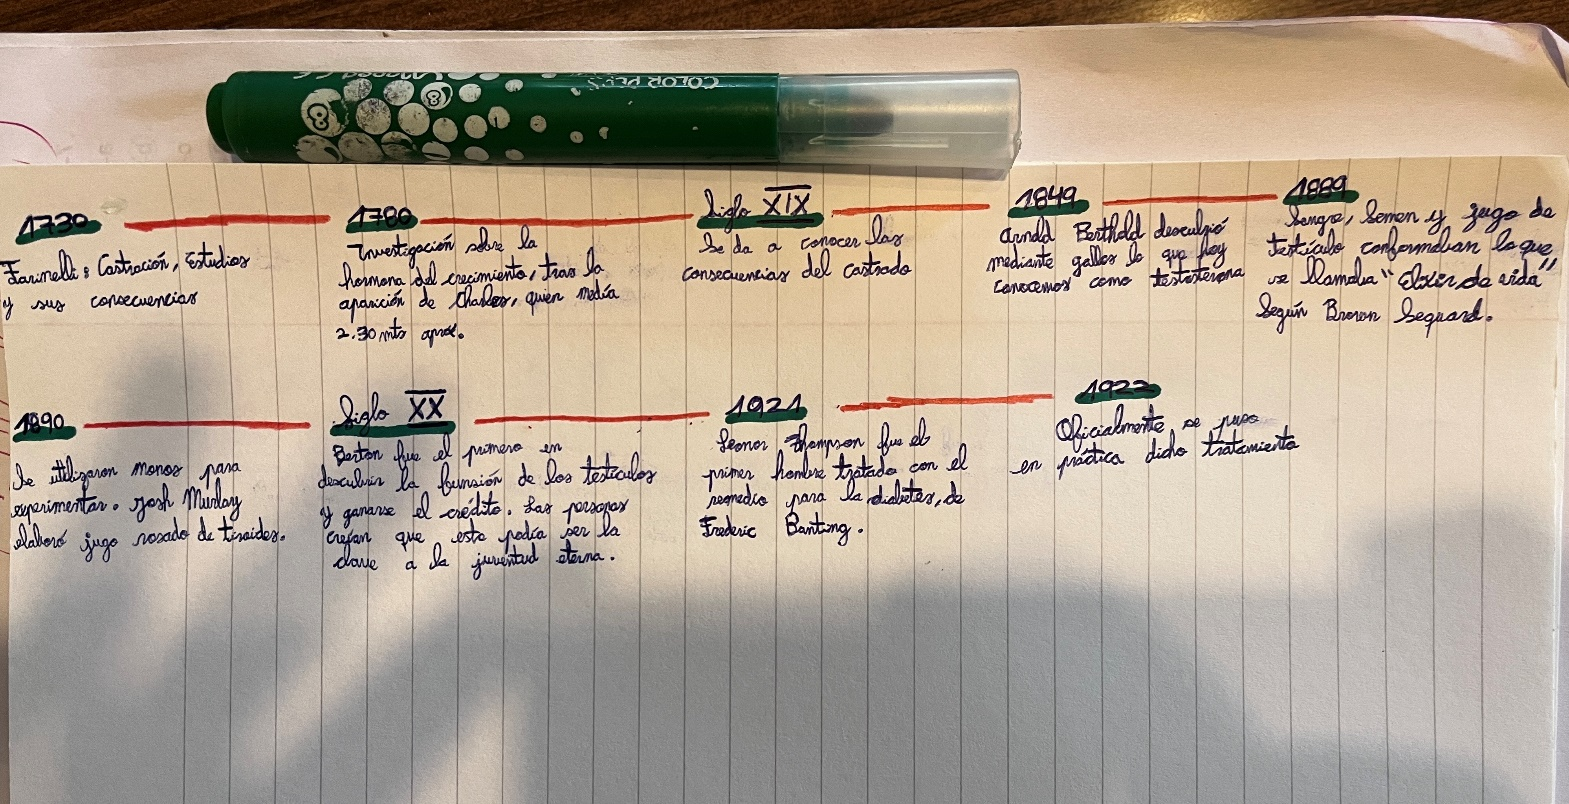 COLOR PEPS
1730
Farinelli: Castración, Estudios
y sus consecuencias
1780
Investigación sobre la
hormona del crecimiento, tras la
aparición de Charles, quien media
2.30 mts aprox.
Siglo XIX
Se da a conocer las
consecuencias del castrado
1849
Arnold Berthold descubrió
mediante gallos lo que hoy
conocemos como testosterona
1889
Sangre, Semen y jugo de
testículo conformaban lo que
se llamaba "Elixir de vida"
Según Brown Sequard.
1890
Se utilizaron monos para
experimentar. Josh Murlay
elaboró jugo rosado de tiroides.
Siglo XX
Bertan fue el primero en
descubrir la función de los testículos
y ganarse el crédito. Las personas
creían que esto podía ser la
clave a la juventud eterna.
1921
Leonor Thompson fue el
primer hombre tratado con el
remedio para la diabetes, de
Frederic Banting.
1922
Oficialmente, se puso
en práctica dicho tratamiento